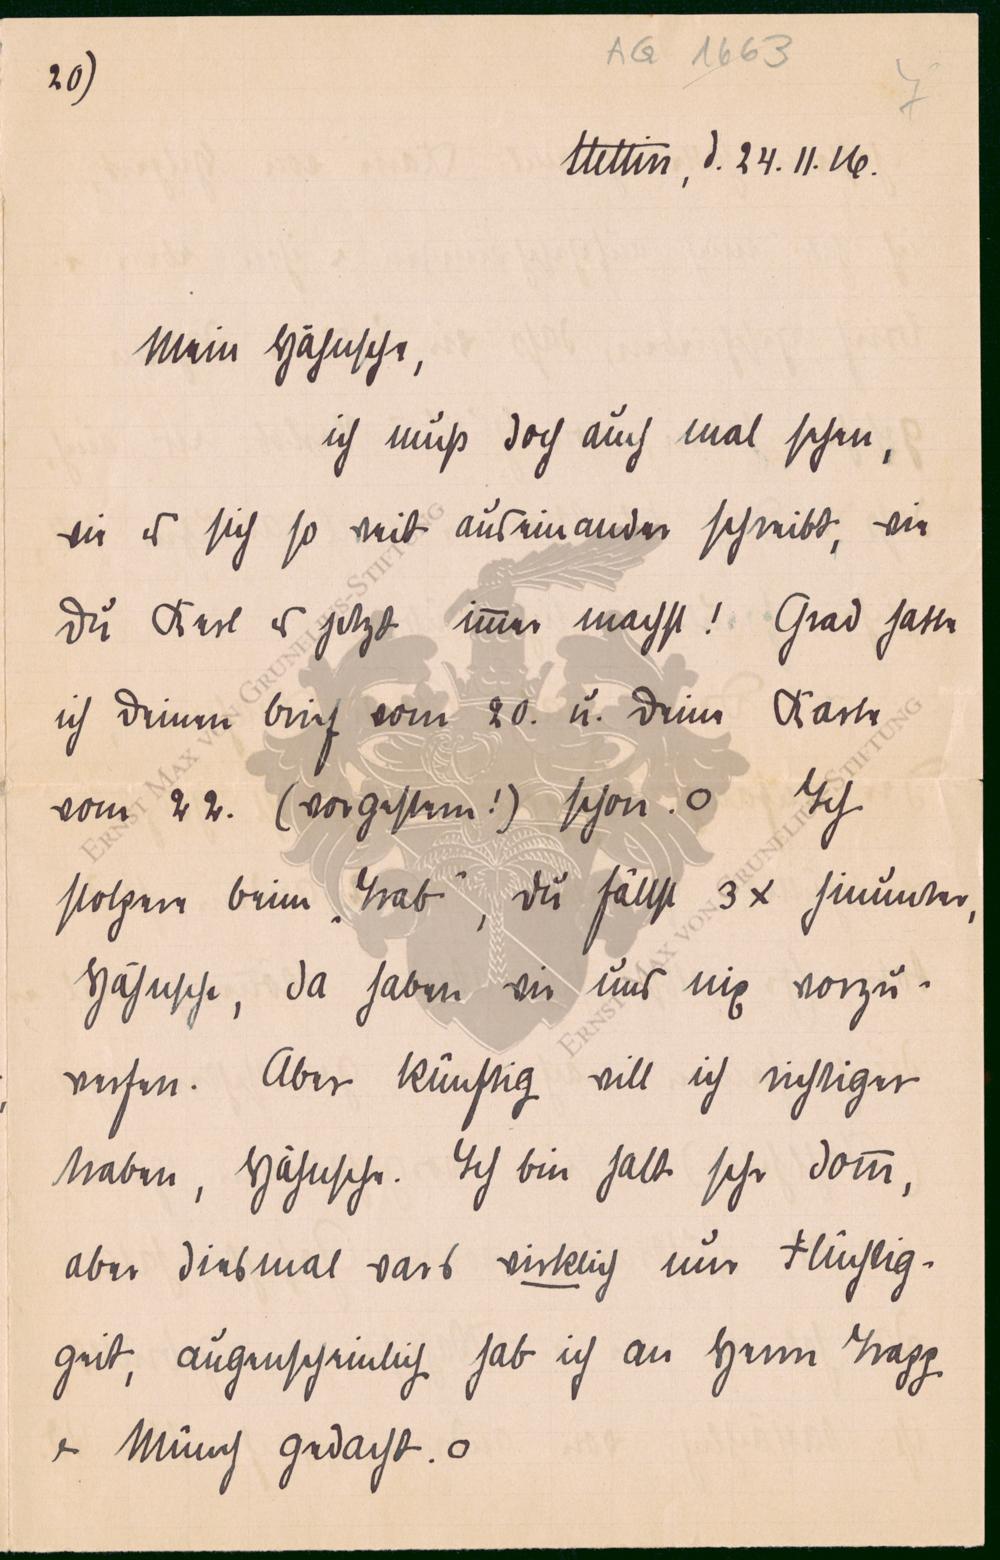 20)
AG 1663
Stettin, d. 24. 11. 16.
Mein Hähnsche,
ich muß doch auch mal sehen,
wie es sich so weit auseinander schreibt, wie
Du Kerl es jetzt immer machst! Grad hatte
ich Deinen Brief vom 20. u. Deine Karte
vom 22. (vorgestern!) schon. o Ich
stolpere beim „Trab", Du fällst 3 x hinunter,
Hähnsche, da haben wir uns nix vorzu-
werfen. Aber künftig will ich richtiger
traben, Hähnsche. Ich bin halt sehr dom̄,
aber diesmal wars wirklich nur Flüchtig-
geit, augenscheinlich hab ich an Herrn Trapp
& Münch gedacht. o
ERNST MAX VON GRUNELIUS-STIFTUNG
ERNST MAX VON GRUNELIUS-STIFTUNG